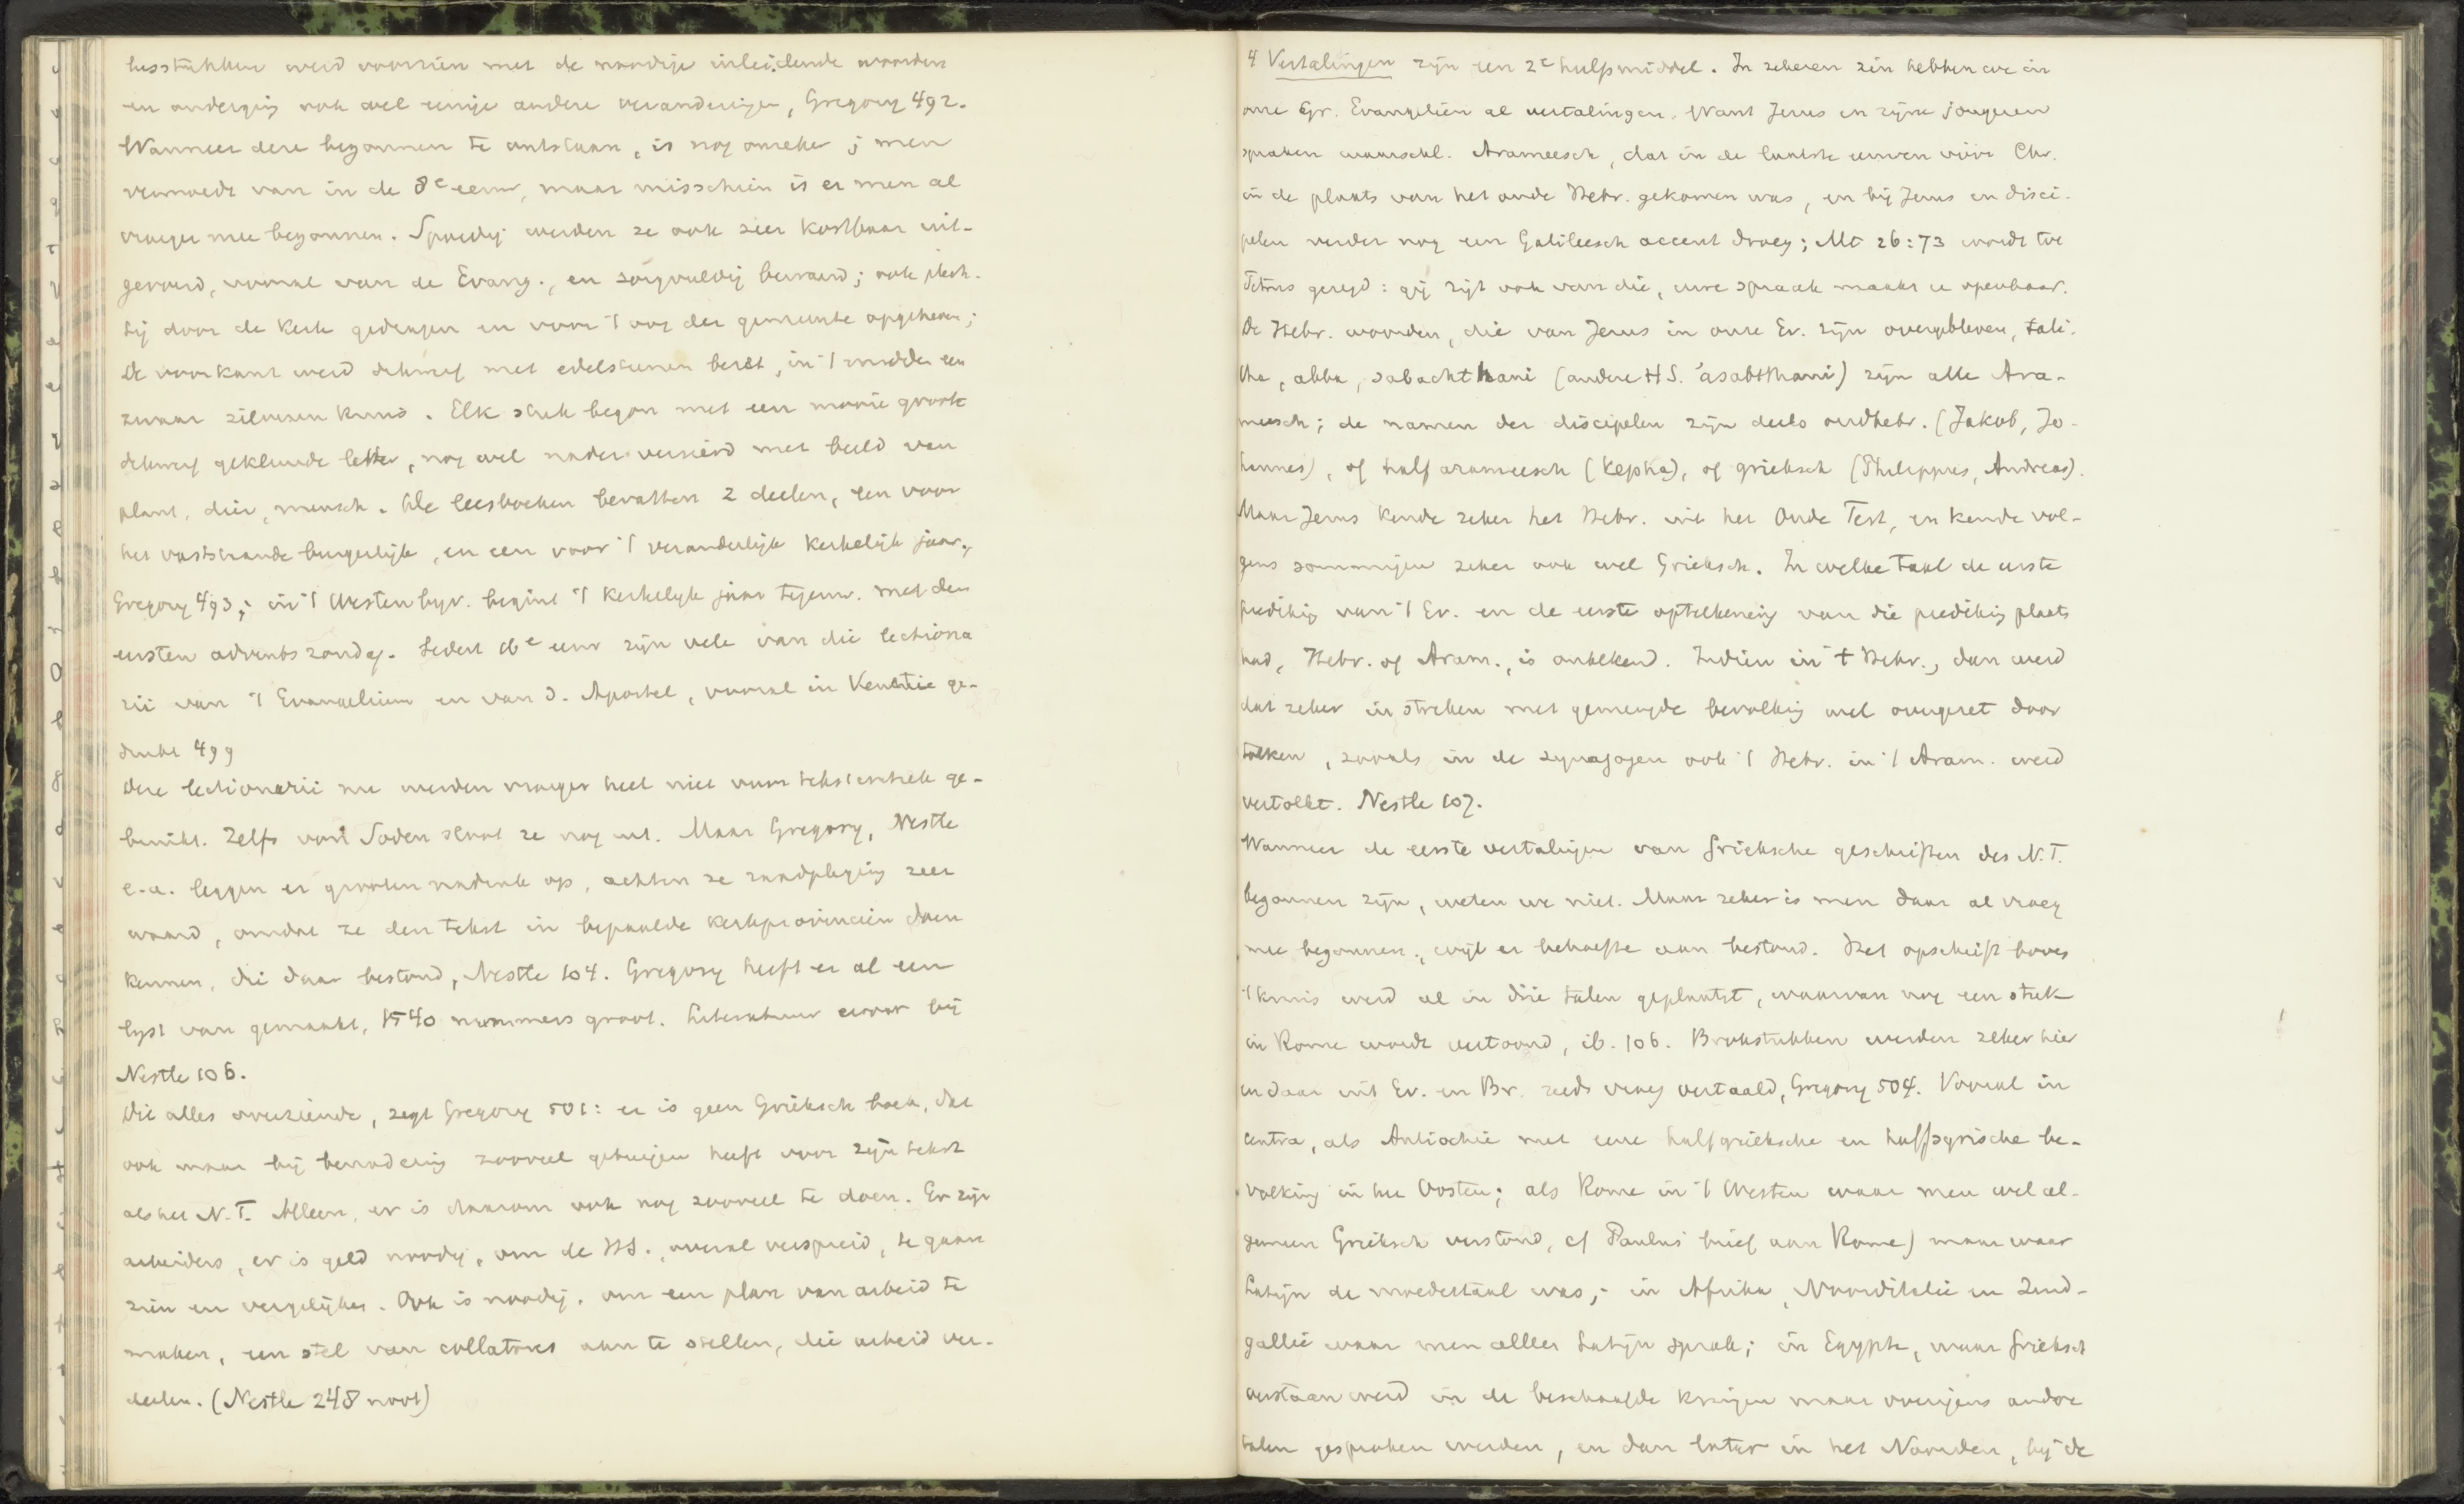 lesstukken werd voorzien met de noodige inleidende woorden
en onderging ook wel eenige andere veranderingen, Gregory 492.
Wanneer deze begonnen te ontstaan, is nog onzeker; men
vermoedt van in de 8e eeuw, maar misschien is er men al
vroeger mee begonnen. Spoedig werden ze ook zeer kostbaar uit-
gevoerd, vooral van de Evang., en zorgvuldig bewaard; ook plech-
tig door de kerk gedragen en voor 't oog der gemeente opgeheven;
De voorkant werd dikwijls met edelsteenen bezet, in 't midden een
zwaar zilveren kruis. Elk stuk begon met een mooie groote
dikwijls gekleurde letter, nog wel nader versierd met beeld van
plant, dier, mensch. Alle leesboeken bevatten 2 deelen, een voor
het vaststaande burgerlijk, en een voor 't veranderlijk kerkelijk jaar,
Gregory 493; in 't Westen bijv. begint 't kerkelijk jaar tegenw. met den
eersten adventszondag. Sedert 16e eeuw zijn vele van die lectiona
rii van 't Evangelium en van d. Apostel, vooral in Venetie ge-
drukt 499
Deze lectionarii nu werden vroeger heel niet voor tekstcritiek ge-
bruikt. Zelfs von Soden sluit ze nog uit. Maar Gregory, Nestle
e.a. leggen er grooten nadruk op, achten ze raadpleging zeer
waard, omdat ze den tekst in bepaalde kerkprovincien doen
kennen, die daar bestond, Nestle 104. Gregory heeft er al een
lijst van gemaakt, 1540 nummers groot. Literatuur erover bij
Nestle 106.
Dit alles overziende, zegt Gregory 501: er is geen Grieksch boek, dat
ook maar bij benadering zooveel getuigen heeft voor zijn tekst
als het N.T. Alleen, er is daarom ook nog zooveel te doen. Er zijn
arbeiders, er is geld noodig, om de HS., overal verspreid, te gaan
zien en vergelijken. Ook is noodig, om een plan van arbeid te
maken, een stel van collatores aan te stellen, die arbeid ver-
deelen. (Nestle 248 noot)
4 Vertalingen zijn een 2e hulpmiddel. In zekeren zin hebben we in
onze Gr. Evangeliën al vertalingen. Want Jezus en zijne jongeren
spraken waarschl. Arameesch, dat in de laatste eeuwen vóór Chr.
in de plaats van het oude Hebr. gekomen was, en bij Jezus en disci-
pelen verder nog een Galileesch accent droeg; Mt 26:73 wordt tot
Petrus gezegd: gij zijt ook van die, uwe spraak maakt u openbaar.
De Hebr. woorden, die van Jezus in onze Ev. zijn overgebleven, tali-
tha, abba, sabachthani (andere HS. 'asabthani) zijn alle Ara-
meesch; de namen der discipelen zijn deels oudhebr. (Jakob, Jo-
hannes), of half arameesch (Kepha), of grieksch (Philippus, Andreas).
Maar Jezus kende zeker het Hebr. uit het Oude Test, en kende vol-
gens sommigen zeker ook wel Grieksch. In welke taal de eerste
prediking van 't Ev. en de eerste opteekening van die prediking plaats
had, Hebr. of Aram., is onbekend. Indien in 't Hebr., dan werd
dat zeker in streken met gemengde bevolking wel overgezet door
tolken, zooals in de synagogen ook 't Hebr. in 't Aram. werd
vertolkt. Nestle 107.
Wanneer de eerste vertalingen van Grieksche geschriften des N.T.
begonnen zijn, weten we niet. Maar zeker is men daar al vroeg
mee begonnen, wijl er behoefte aan bestond. Het opschrift boven
't kruis werd al in drie talen geplaatst, waarvan nog een stuk
in Rome wordt vertoond, ib. 106. Brokstukken werden zeker hier
en daar uit Ev. en Br. reeds vroeg vertaald, Gregory 504. Vooral in
centra, als Antiochie met eene halfgrieksche en halfsyrische be-
volking in het Oosten; als Rome in 't Westen waar men wel al-
gemeen Grieksch verstond, cf Paulus' brief aan Rome) maar waar
Latijn de moedertaal was; in Afrika, Noorditalie en Zuid-
gallie waar men alleen Latijn sprak; in Egypte, waar Grieksch
verstaan werd in de beschaafde kringen maar overigens andere
talen gesproken werden, en dan later in het Noorden, bij de